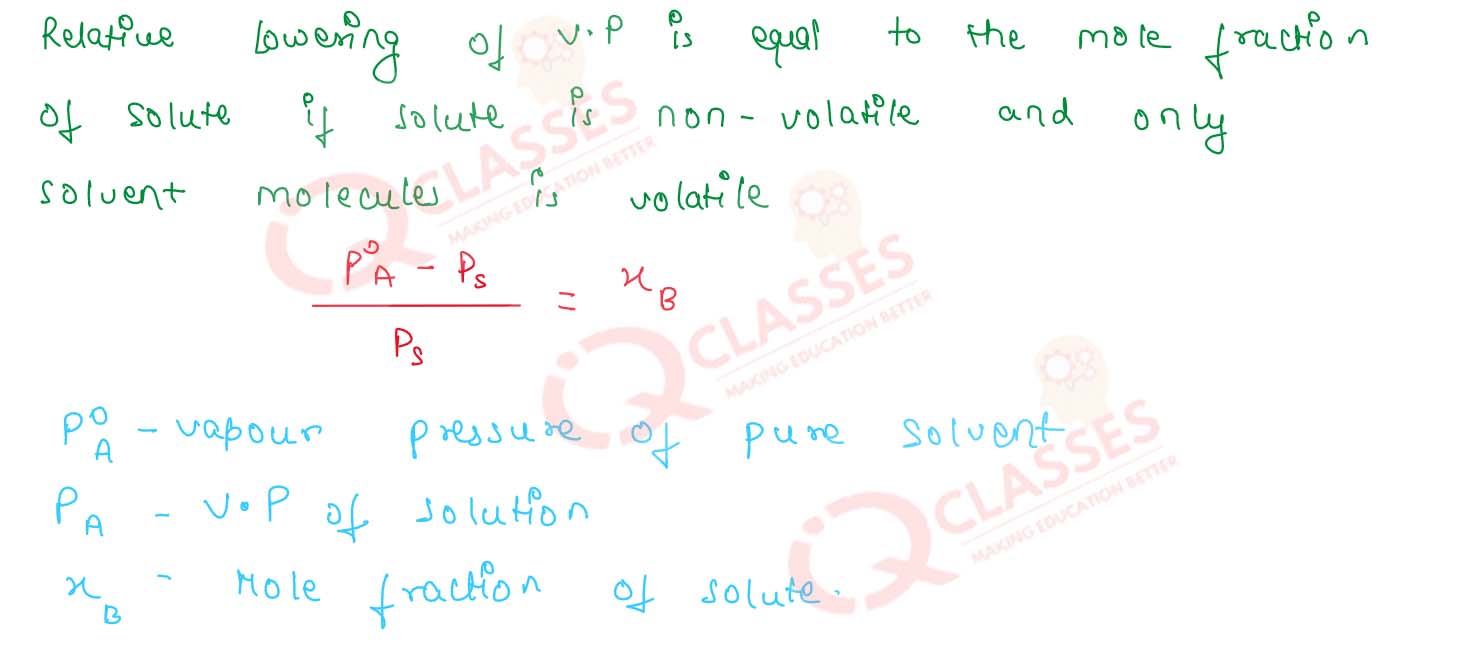 Relative lowering of V.P is equal to the mole fraction
of solute if solute is non-volatile and only
solvent molecules is volatile
P°A - Ps
= xB
Ps
P°A - vapour pressure of pure solvent
PA - V.P of solution
xB - Mole fraction of solute.
CLASSES
MAKING EDUCATION BETTER
CLASSES
MAKING EDUCATION BETTER
CLASSES
MAKING EDUCATION BETTER